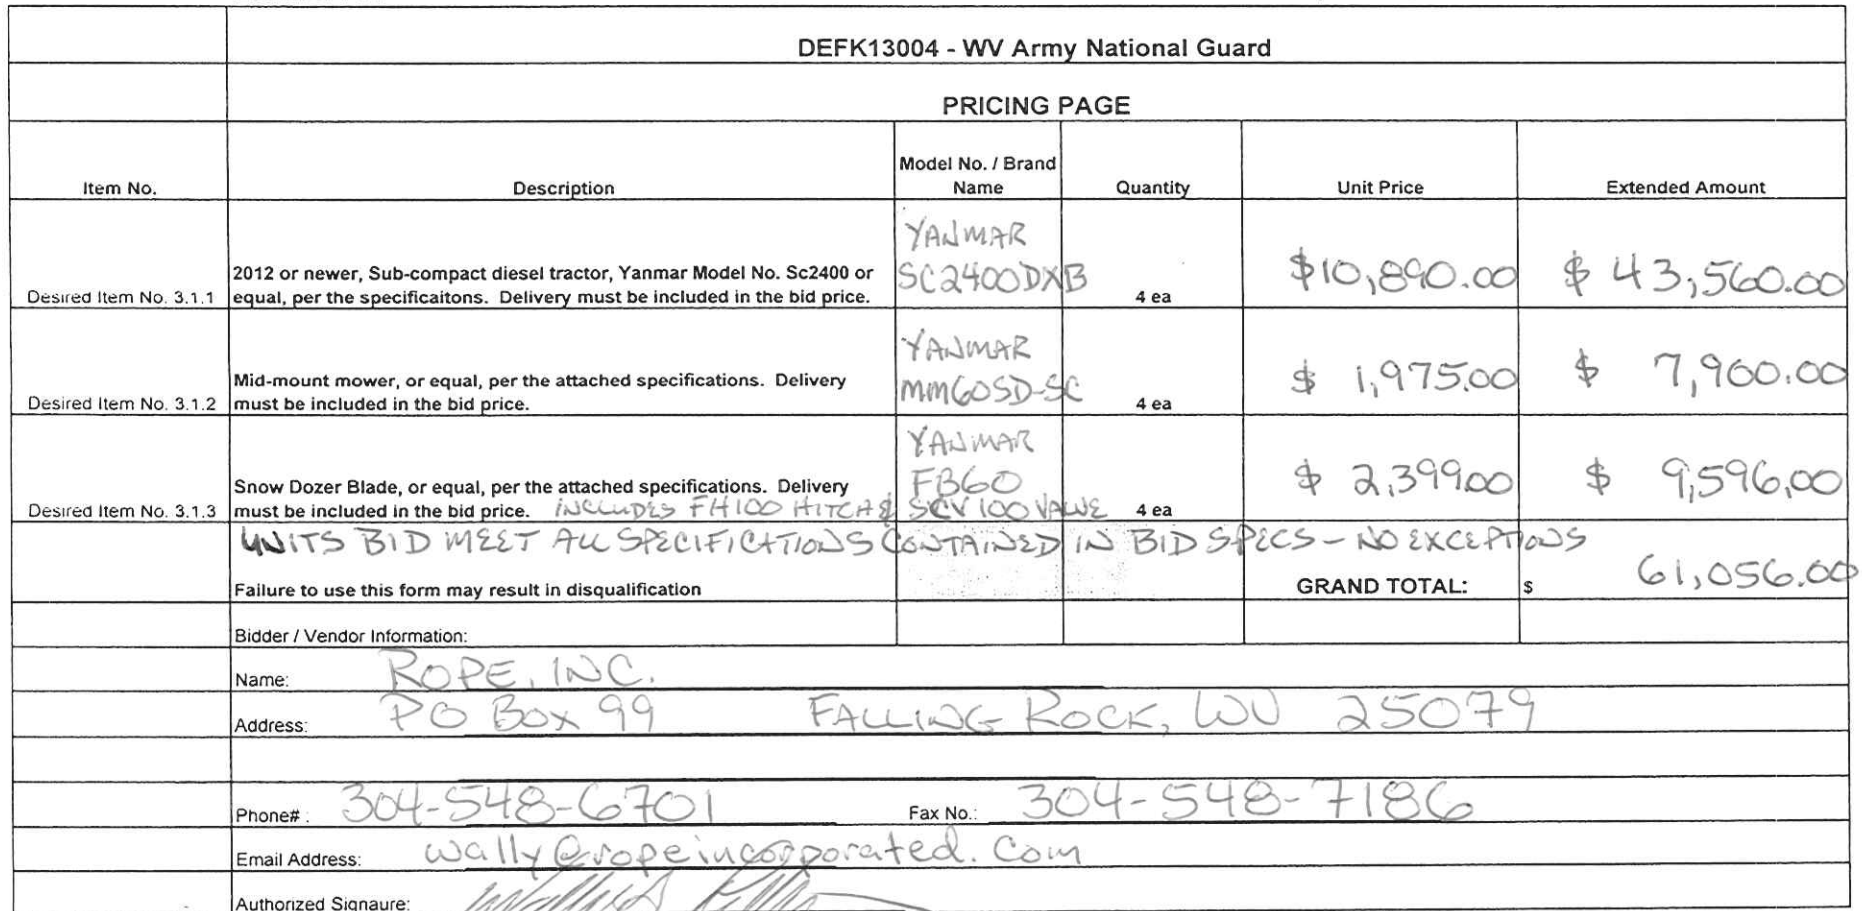 DEFK13004 - WV Army National Guard
PRICING PAGE
Item No. Description Model No. / Brand Name Quantity Unit Price Extended Amount
Desired Item No. 3.1.1 2012 or newer, Sub-compact diesel tractor, Yanmar Model No. Sc2400 or
equal, per the specificaitons. Delivery must be included in the bid price.
YANMAR
SC2400DXB
4 ea $10,890.00 $ 43,560.00
Desired Item No. 3.1.2 Mid-mount mower, or equal, per the attached specifications. Delivery
must be included in the bid price.
YANMAR
MM60SD-SC
4 ea $ 1,975.00 $ 7,900.00
Desired Item No. 3.1.3 Snow Dozer Blade, or equal, per the attached specifications. Delivery
must be included in the bid price. INCLUDES FH100 HITCH & SCV100 VALVE
YANMAR
FB60
4 ea $ 2,399.00 $ 9,596.00
UNITS BID MEET ALL SPECIFICATIONS CONTAINED IN BID SPECS - NO EXCEPTIONS
Failure to use this form may result in disqualification GRAND TOTAL: $ 61,056.00
Bidder / Vendor Information:
Name: ROPE, INC.
Address: PO BOX 99 FALLING ROCK, WV 25079
Phone# : 304-548-6701 Fax No.: 304-548-7186
Email Address: wally@ropeincorporated.com
Authorized Signaure: